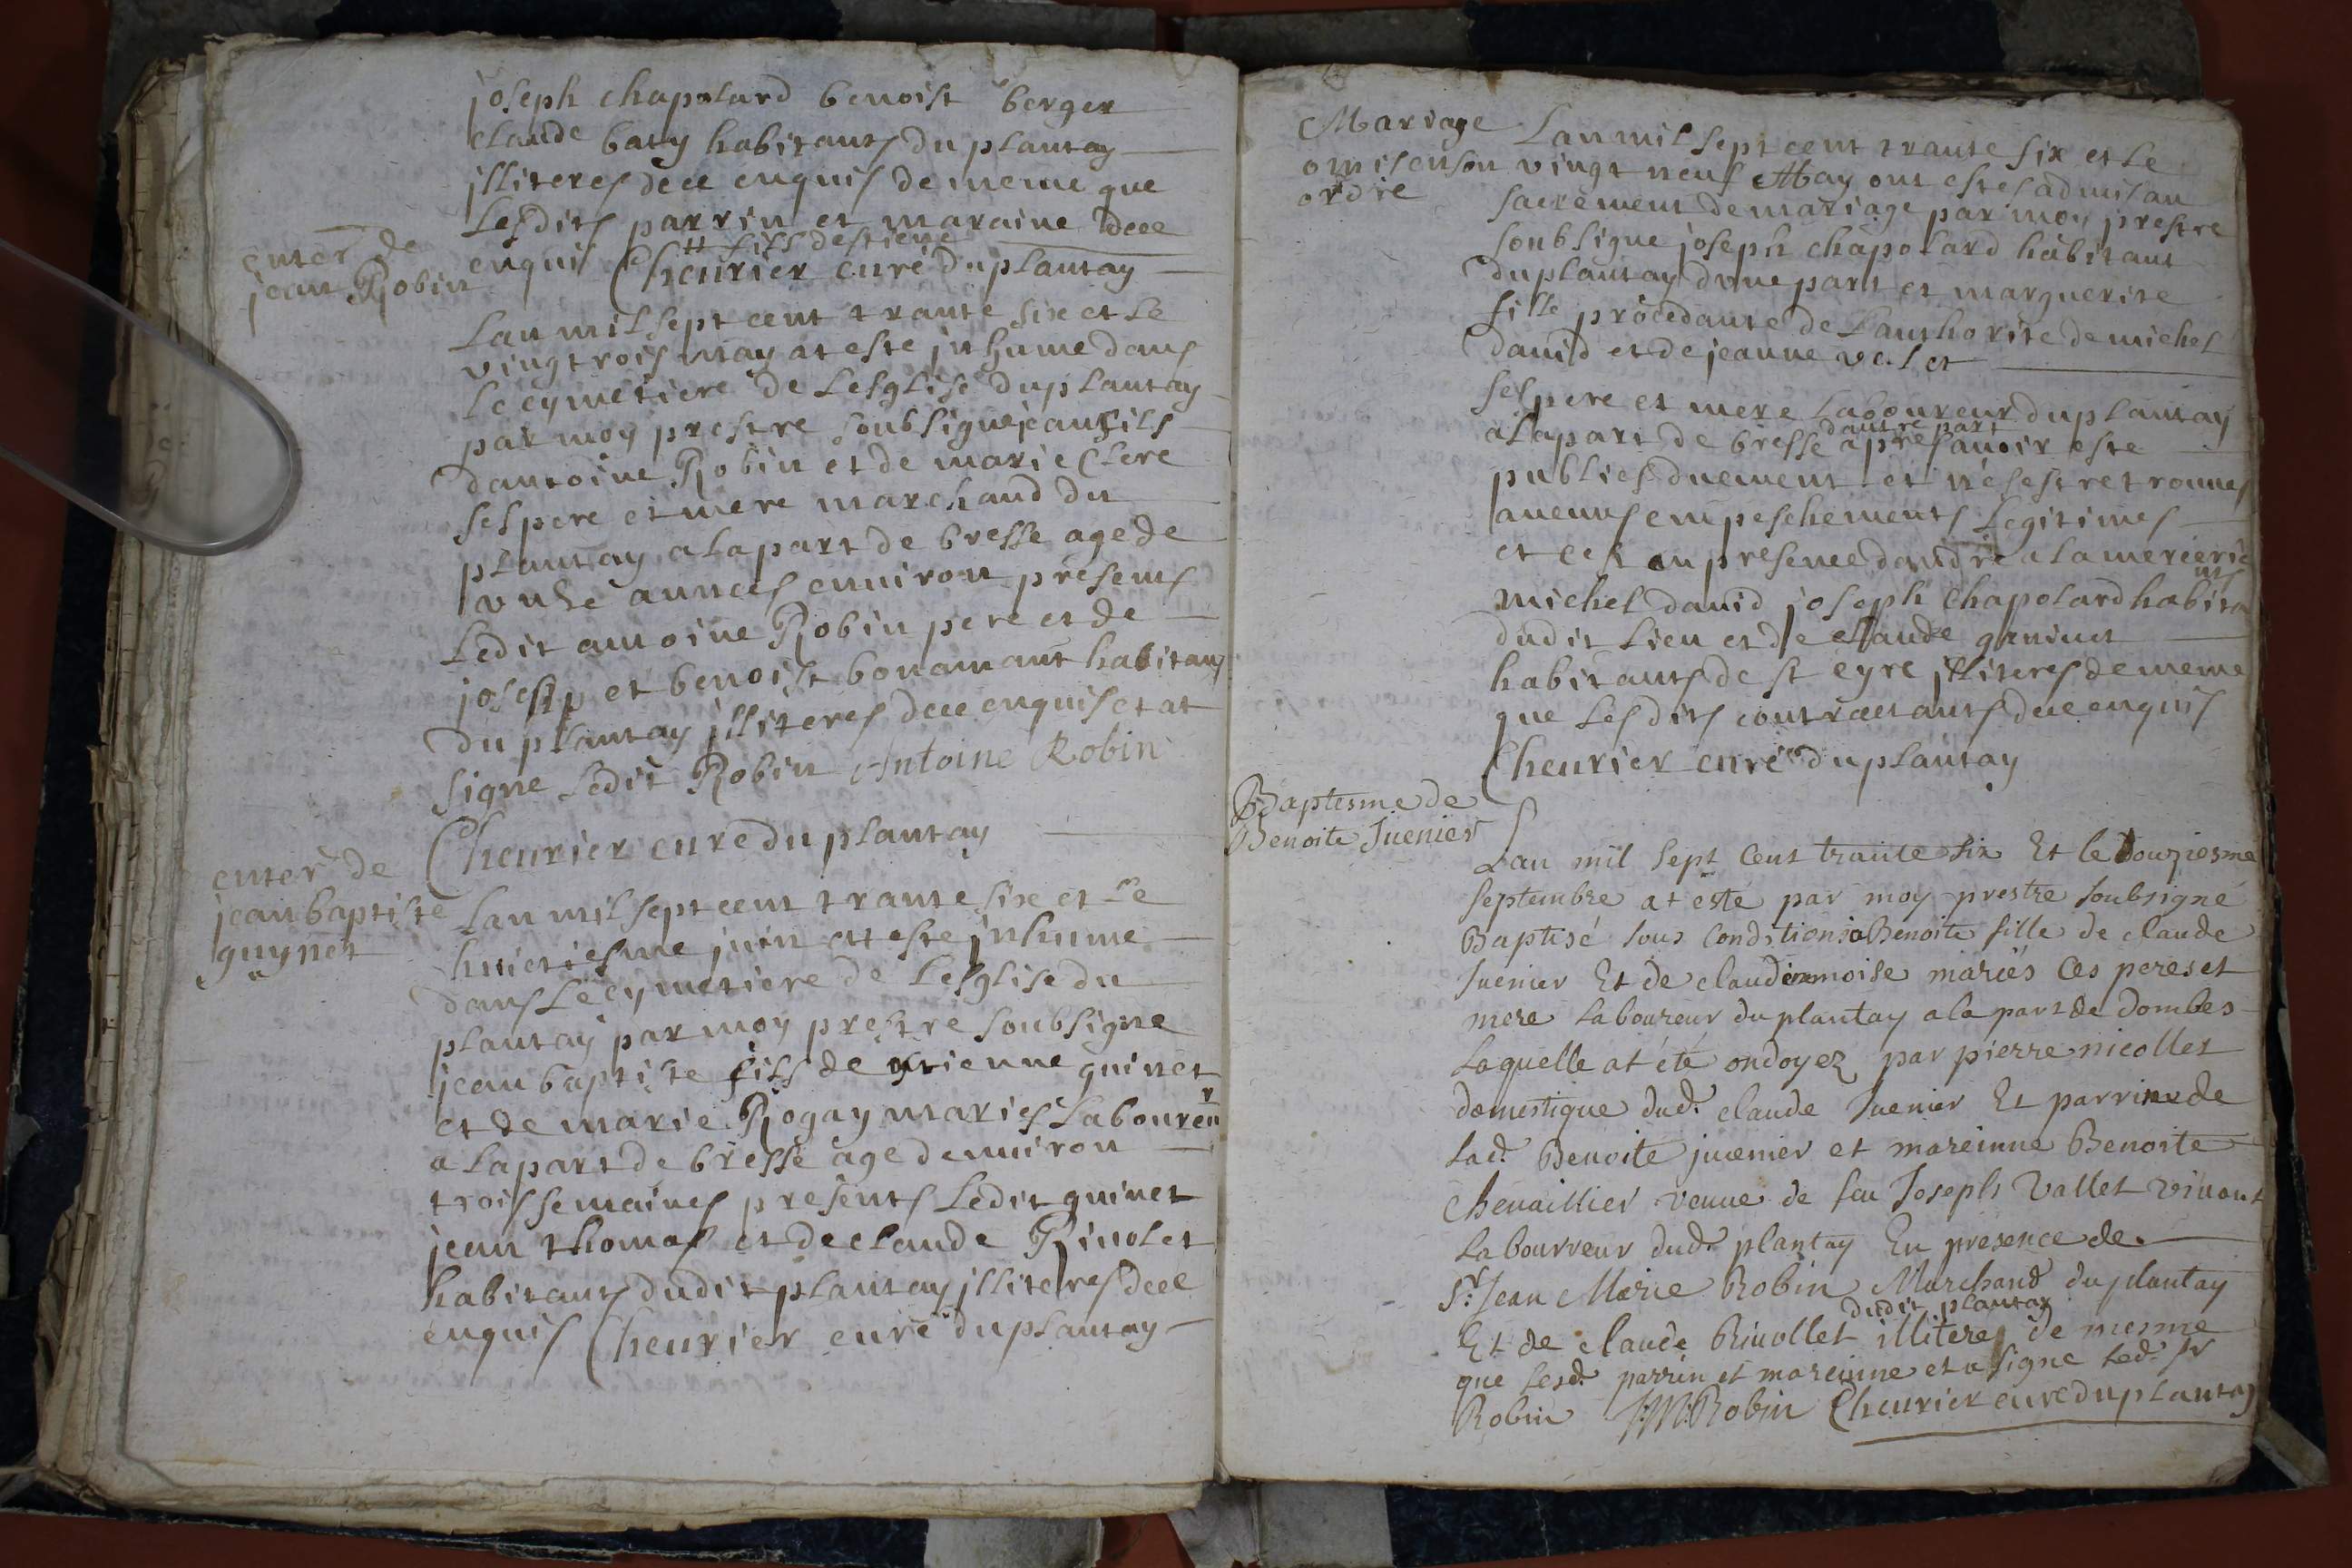 joseph chapolard benoist berger
claude baty habitants du plantay
jlliteres dece enquis de meme que
lesdits parrin et maraine dece
enquis Cheurier curé du plantay
tt fils destiene
enter de
jean Robin
Lan mil sept cent trante six et le
vingtrois may at este jnhume dans
le cymetiere de Lesglise du plantay
par moy prestre soubsigne jean fils
dantoine Robin et de marie Clere
ses pere et mere marchand du
plantay a la part de bresse age de
vnze annees enuiron presents
Ledit antoine Robin pere et de
joseph et benoist bonamant habitans
du plantay jlliteres dece enquis et at
signe ledit Robin Antoine Robin
Cheurier cure du plantay
enter de
jean baptiste
guynet
Lan mil sept cent trante six et le
huictiesme juin at este jnhume
dans le cymetiere de Lesglise du
plantay par moy prestre soubsigne
jean baptiste fils de etienne guinet
et de marie Rogay maries laboureur
a la part de bresse age denuiron
trois semaines presents Ledit guinet
jean thomas et de claude Riuolet
habitants dudit plantay jlliteres dece
enquis Cheurier curé du plantay
Mariage
omis en son
ordre
Lan mil sept cent trante six et le
vingt neuf May ont estes admis au
sacrement de mariage par moy prestre
soubsigne joseph chapolard habitant
du plantay dune part et marguerite
fille procedante de Lauthorite de michel
dauid et de jeanne velet
ses pere et mere laboureur du plantay
dautre part
a la part de bresse apres auoir este
publies duement et ne sestre trouues
aucuns empeschements Legitimes
et ce en presence dandre lamercerie
michel dauid joseph chapolard habitants
dudit lieu et de claude ganinet
habitants de st eyre jlliteres de meme
que lesdits contractants dece enquis
Cheurier curé du plantay
Baptesme de
Benoite Juenier
Lan mil sept cent trante six Et le douziesme
septembre at esté par moy prestre soubsigné
Baptisé sous condition Benoite fille de claude
Juenier Et de claudine moise mariés ces peres et
mere laboureur du plantay a la part de dombes
Laquelle at été ondoyez par pierre nicollet
domestique dud. claude Juenier Et parrin de
lad. Benoite juenier et mareinne Benoite
cheuaillier veuue de feu Joseph Vallet viuant
labourreur dud. plantay En presence de
Sr. Jean Marie Robin Marchand du plantay
dudit plantay
Et de claude Riuollet illiteres de mesme
que lesd. parrin et mareinne et a signe led. sr
Robin J.M. Robin Cheurier curé du plantay